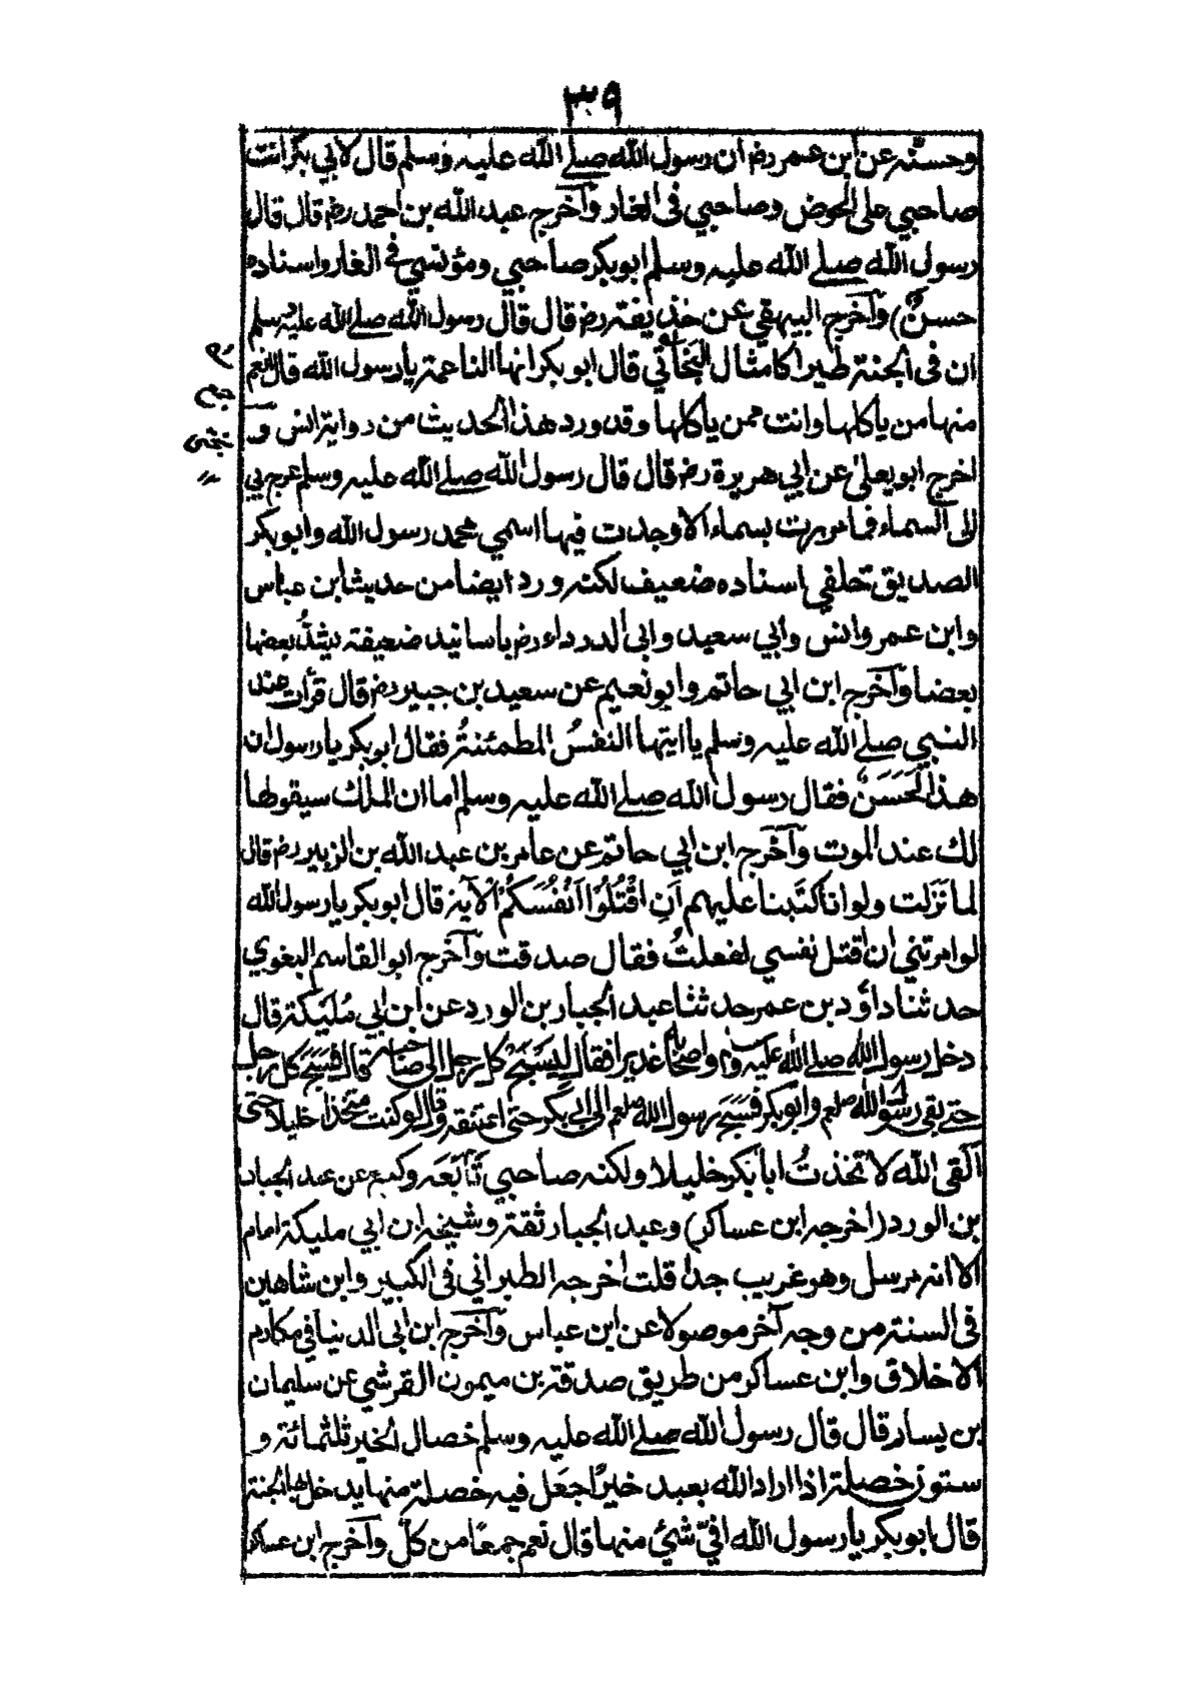 ٣٩
وحسنه عن ابن عمر رض ان رسول الله صلے الله عليه وسلم قال لابي بكر انت
صاحبي على الحوض وصاحبي فى الغار وآخرج عبد الله بن احمد رض قال قال
رسول الله صلے الله عليه وسلم ابو بكر صاحبي ومؤنسي في الغار واسناده
حسنٌ) وآخرج البيهقي عن حذيفة رض قال قال رسول الله صلے الله عليه وسلم
ان فى الجنة طيرا كامثال البَخَاتي قال ابو بكر انها الناعمة يا رسول الله قال انعم
منها من ياكلها وانت ممن ياكلها وقد ورد هذا الحديث من رواية انس و
اخرج ابو يعلىٰ عن ابي هريرة رض قال قال رسول الله صلے الله عليه وسلم عرج بي
الى السماء فما مررت بسماء الا وجدت فيها اسمي محمد رسول الله وابو بكر
الصديق خلفي اسناده ضعيف لكنه ورد ايضا من حديث ابن عباس
وابن عمر وانس وابي سعيد وابى الدرداء رض باسانيد ضعيفة يشدُّ بعضها
بعضا وآخرج ابن ابي حاتم وابو نعيم عن سعيد بن جبير رض قال قرأت عند
النبي صلے الله عليه وسلم يا ايتها النفسُ المطمئنةُ فقال ابو بكر يا رسول ان
هذا لَحَسَنٌ فقال رسول الله صلے الله عليه وسلم اما ان الملك سيقولها
لك عند الموت وآخرج ابن ابي حاتم عن عامر بن عبد الله بن الزبير رض قال
لما نَزَلت ولو انا كَتَبنا عليهم اَنِ اقْتُلُوْا اَنْفُسَكُمْ الآية قال ابو بكر يا رسول الله
لو امرتني ان اقتل نفسي لفعلتُ فقال صدقت وآخرج ابو القاسم البغوي
حدثنا داؤد بن عمر حدثنا عبد الجبار بن الورد عن ابن ابي مُلَيكة قال
دخل رسول الله صلے الله عليه وسلم واصحابه غديرا فقال لِيَسْبَحْ كل رجل الى صاحبه قال فَسَبَحَ كل رجل
حتے بقى رسول الله صلعم وابو بكر فَسَبَحَ رسول الله صلعم الى ابى بكر حتى اعتنقه وقال لو كنت متخذا خليلا حتى
اَلقى الله لاتخذتُ ابا بكر خليلا ولكنه صاحبي تَابَعَه وكيع عن عبد الجبار
بن الورد (اخرجه ابن عساكر) وعبد الجبار ثقة وشيخه ابن ابي مليكة امام
الا انه مرسل وهو غريب جدا قلت اخرجه الطبراني فى الكبير وابن شاهين
فى السنة من وجه آخر موصولا عن ابن عباس وآخرج ابن ابى الدنيا في مكارم
الاخلاق وابن عساكر من طريق صدقة بن ميمون القرشي عن سليمان
بن يسار قال قال رسول الله صلے الله عليه وسلم خصال الخير ثلثمائة و
ستون خصلة اذا اراد الله بعبد خيرًا جعَل فيه خصلة منها يدخل بها الجنة
قال ابو بكر يا رسول الله افيّ شئ منها قال نعم جمعًا من كلٍّ وآخرج ابن عساكر
جمع
بختى